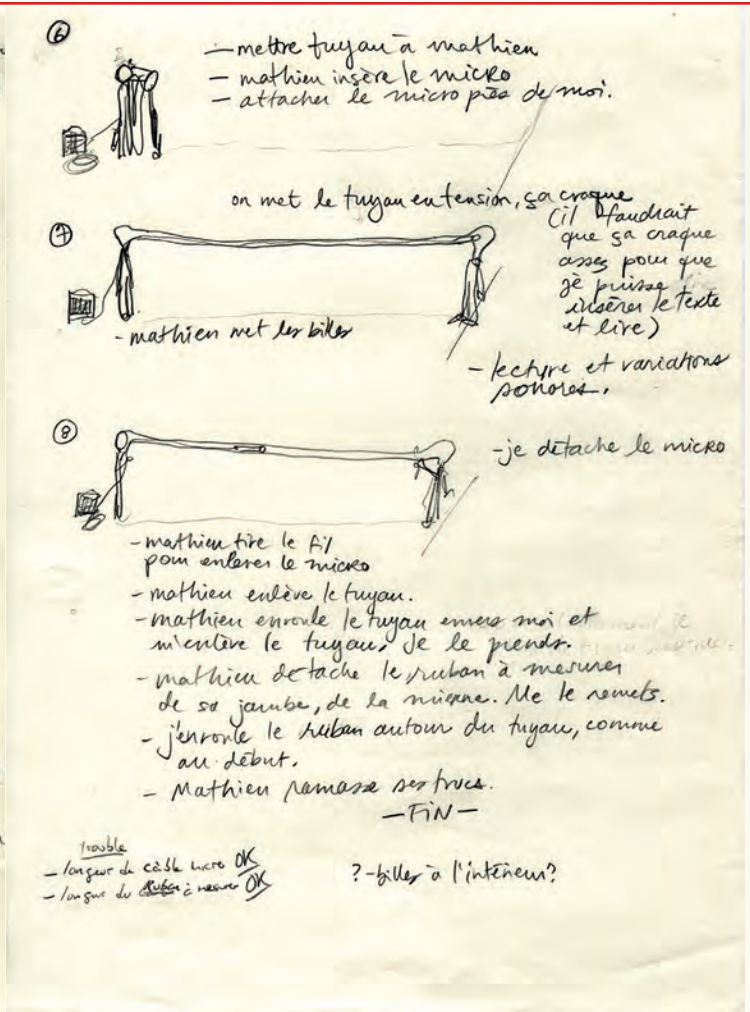 6
– mettre tuyau à mathieu
– mathieu insère le micro
– attacher le micro près de moi.
on met le tuyau en tension, ça craque
(il faudrait
que ça craque
assez pour que
je puisse
insérer le texte
et lire)
7
- mathieu met les billes
- lecture et variations
sonores.
8
-je détache le micro
- mathieu tire le fil
pour enlever le micro
- mathieu enlève le tuyau.
- mathieu enroule le tuyau envers moi et
m'enlève le tuyau. Je le prends.
- mathieu détache le ruban à mesurer
de sa jambe, de la mienne. Me le remets.
- j'enroule le ruban autour du tuyau, comme
au début.
- Mathieu ramasse ses trucs.
—FIN—
trouble
- longueur du câble micro OK
- longueur du ruban à mesurer OK
?-billes à l'intérieur?